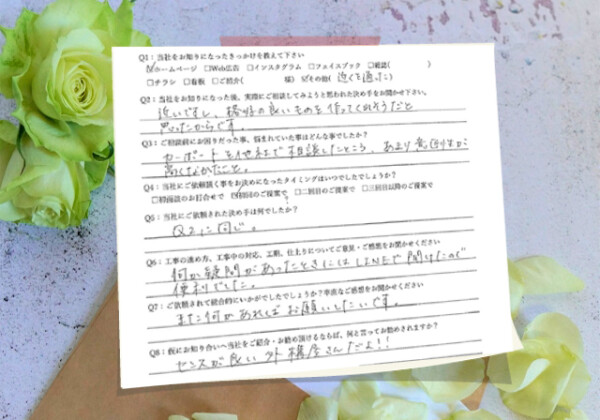 Q1：当社をお知りになったきっかけを教えて下さい
☑ホームページ □Web広告 □インスタグラム □フェイスブック □雑誌( )
□チラシ □看板 □ご紹介( 様) ☑その他( 近くを通った )
Q2：当社をお知りになった後、実際にご相談してみようと思われた決め手をお聞かせ下さい。
近いですし、構外の良いものを作ってくれそうだと
思ったからです。
Q3：ご相談前にお困りだった事、悩まれていた事はどんな事でしたか？
カーポートを他社で相談したところ、あまり意
高くなかったこと。
Q4：当社にご依頼頂く事をお決めになったタイミングはいつでしたでしょうか？
□初面談のお打合せで ☑初回のご提案で □二回目のご提案で □三回目以降のご提案で
Q5：当社にご依頼された決め手は何でしたか？
Q2に同じ。
Q6：工事の進め方、工事中の対応、工期、仕上りについてご意見・ご感想をお聞かせください
何か疑問があったときにはLINEで聞けたので
便利でした。
Q7：ご依頼されて総合的にいかがでしたでしょうか？率直なご感想をお聞かせください
また何かあればお願いしたいです。
Q8：仮にお知り合いへ当社をご紹介・お勧め頂けるならば、何と言ってお勧めされますか？
センスが良い外構屋さんだよ！！